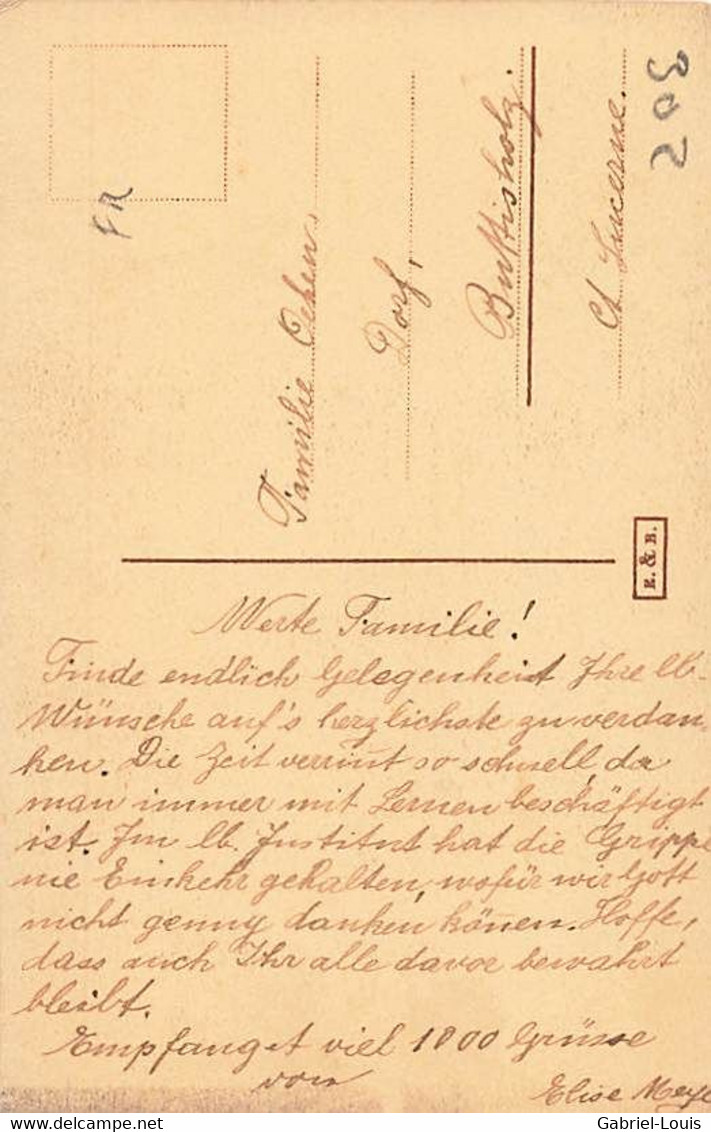 302
FR
Familie Oehen,
Dorf,
Buttisholz.
Ct. Lucerne.
E. & B.
Werte Familie!
Finde endlich Gelegenheit Ihre lb.
Wünsche auf's herzlichste zu verdan-
ken. Die Zeit verrint so schnell, da
man immer mit Lernen beschäftigt
ist. Im lb. Institut hat die Grippe
nie Einkehr gehalten, wofür wir Gott
nicht genug danken können. Hoffe,
dass auch Ihr alle davor bewahrt
bleibt.
Empfanget viel 1000 Grüsse
von
Elise Meye
Gabriel-Louis